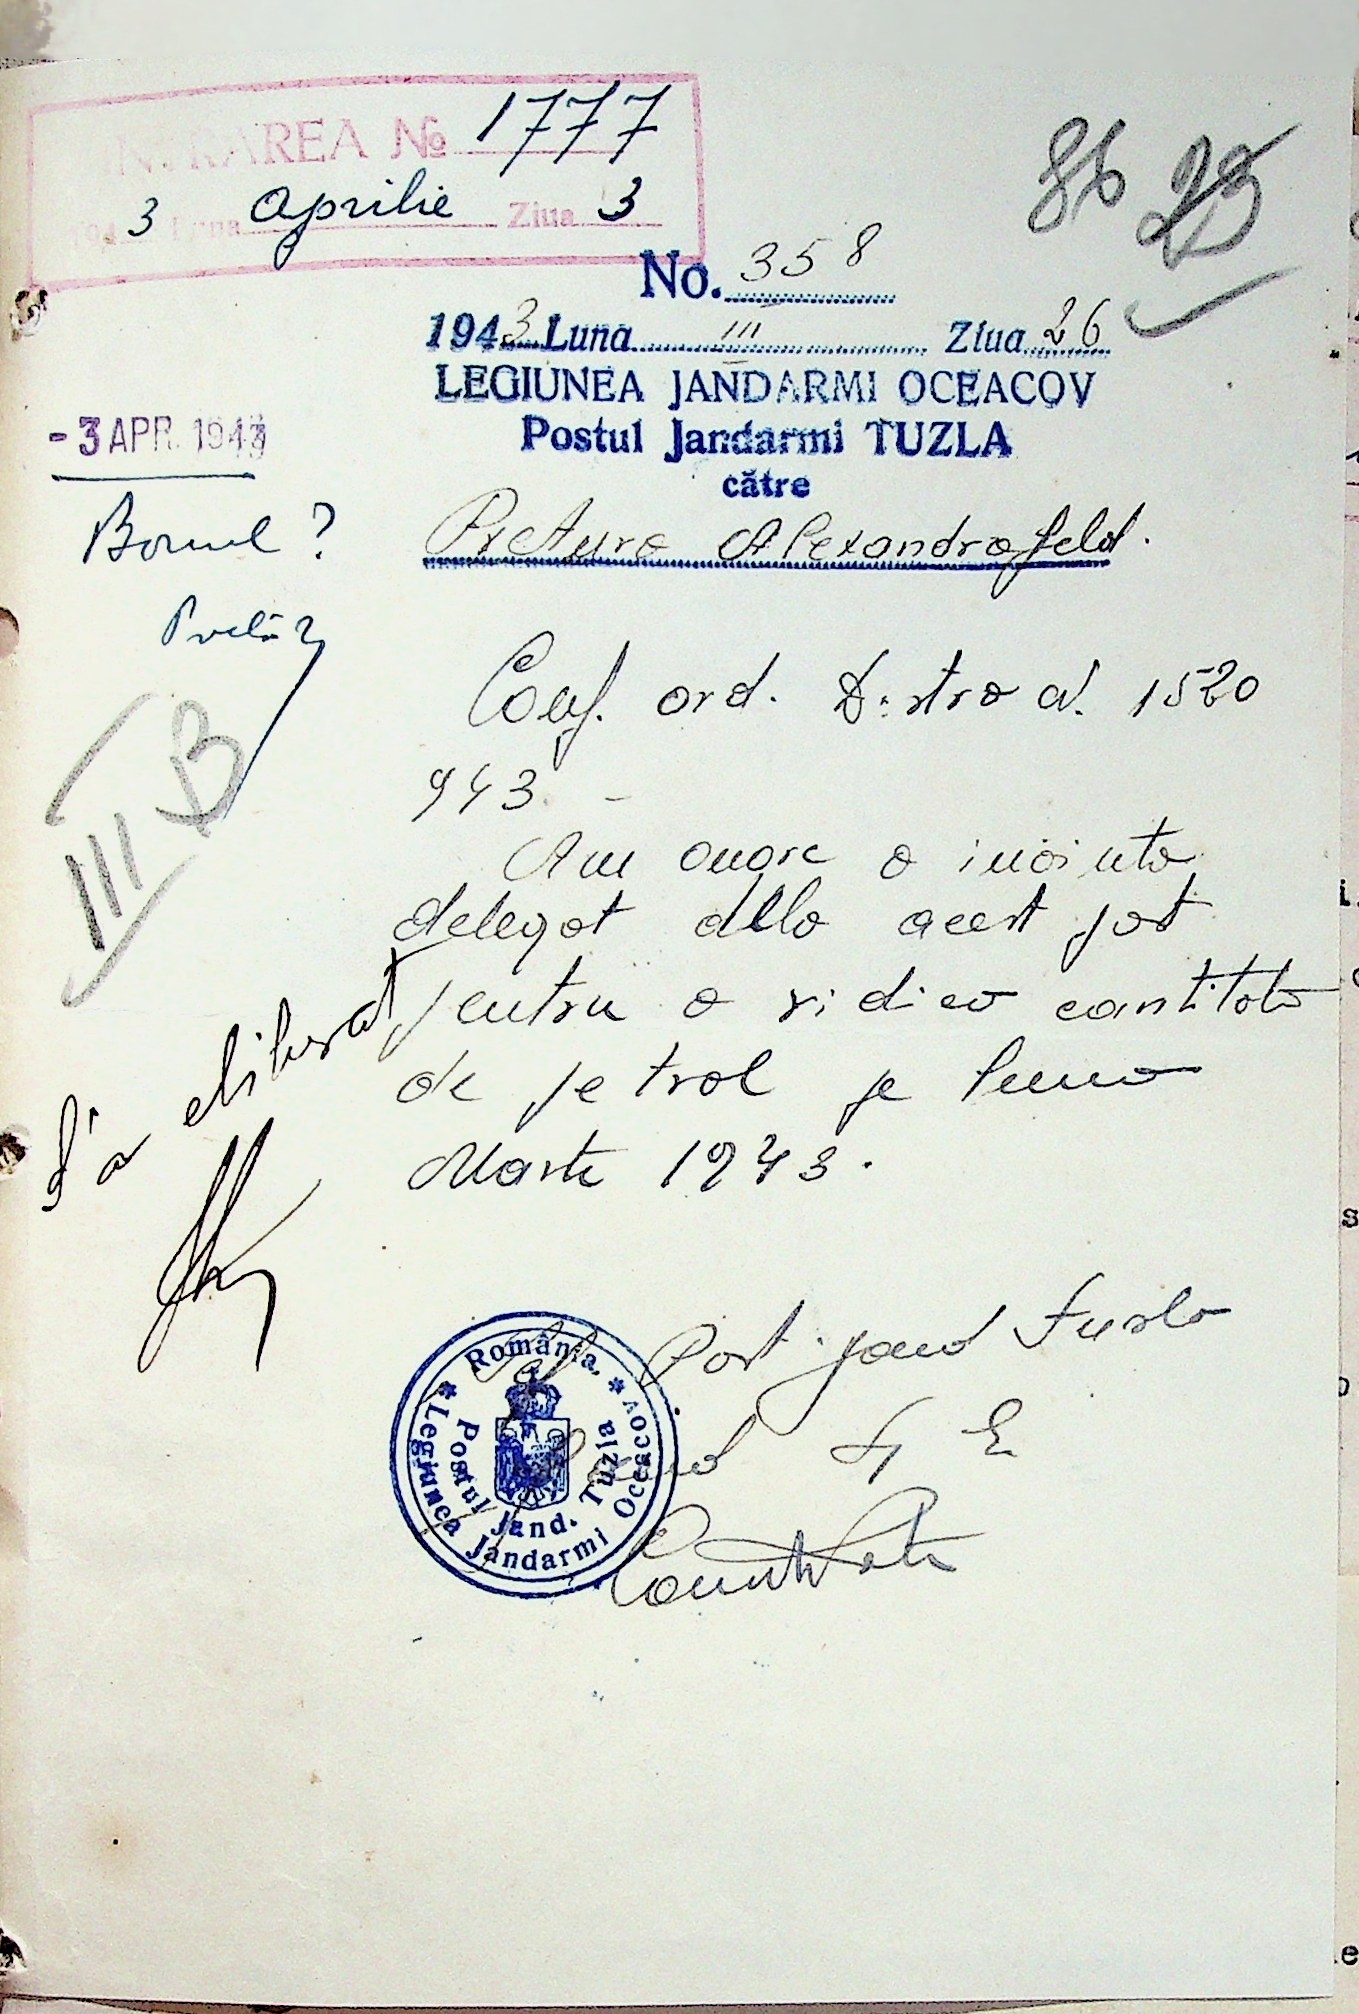 INTRAREA № 1777
1943 Luna Aprilie Ziua 3
86 23
No. 358
1943 Luna III Ziua 26
LEGIUNEA JANDARMI OCEACOV
Postul Jandarmi TUZLA
către
Pretura Alexandrafeld.
-3 APR. 1943
Bonul ?
III B
Conf. ord. D-stra N. 1520
943. –
Am onoare a inainta
delegat dela acest post
pentru a ridica cantitate
de petrol pe luna
Marte 1943.
S'a eliberat
Post jand Tuzla
România
Legiunea Jandarmi Oceacov
Postul Jand. Tuzla